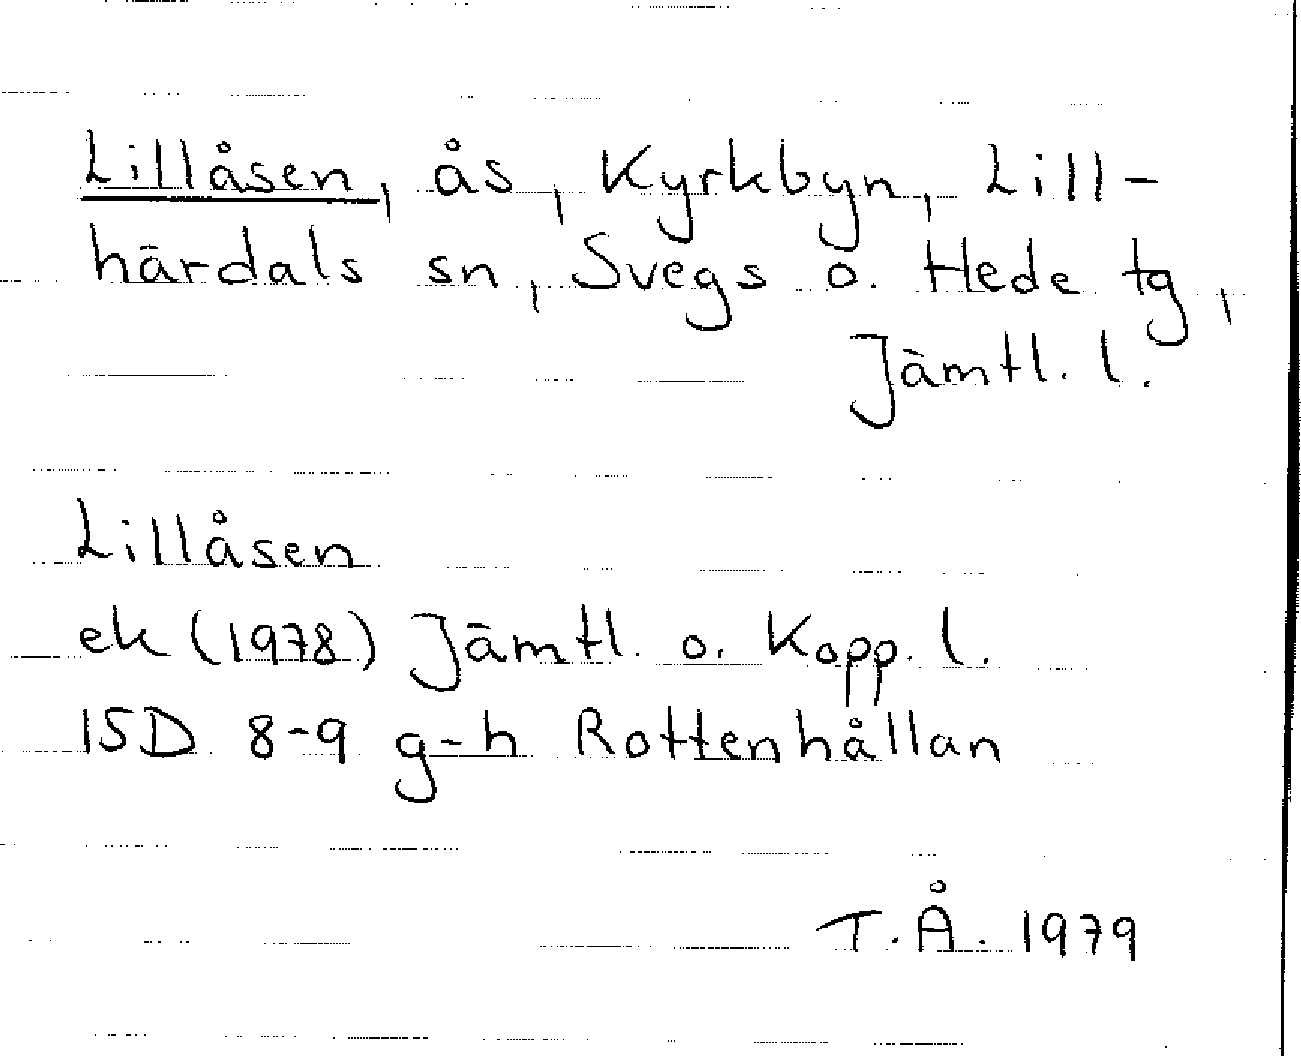 Lillåsen, ås, Kyrkbyn, Lill-
härdals sn, Svegs o. Hede tg,
Jämtl. l.
Lillåsen
ek (1978) Jämtl. o. Kopp. l.
15D 8-9 g-h Rottenhållan
T.Å. 1979